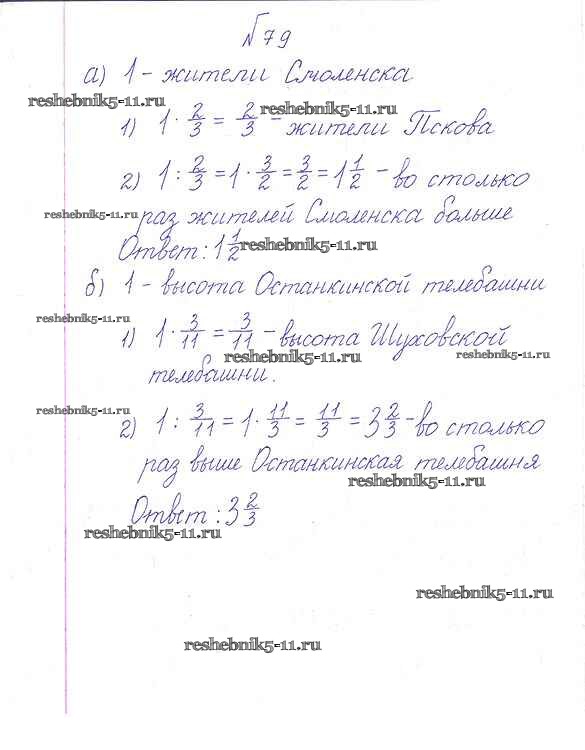 № 79
а) 1 - жители Смоленска
reshebnik5-11.ru
reshebnik5-11.ru
1) 1 · 2/3 = 2/3 - жители Пскова
2) 1 : 2/3 = 1 · 3/2 = 3/2 = 1 1/2 - во столько
reshebnik5-11.ru
раз жителей Смоленска больше
Ответ: 1 1/2
reshebnik5-11.ru
б) 1 - высота Останкинской телебашни
reshebnik5-11.ru
1) 1 · 3/11 = 3/11 - высота Шуховской
reshebnik5-11.ru
reshebnik5-11.ru
телебашни.
reshebnik5-11.ru
2) 1 : 3/11 = 1 · 11/3 = 11/3 = 3 2/3 - во столько
раз выше Останкинская телебашня
reshebnik5-11.ru
Ответ: 3 2/3
reshebnik5-11.ru
reshebnik5-11.ru
reshebnik5-11.ru